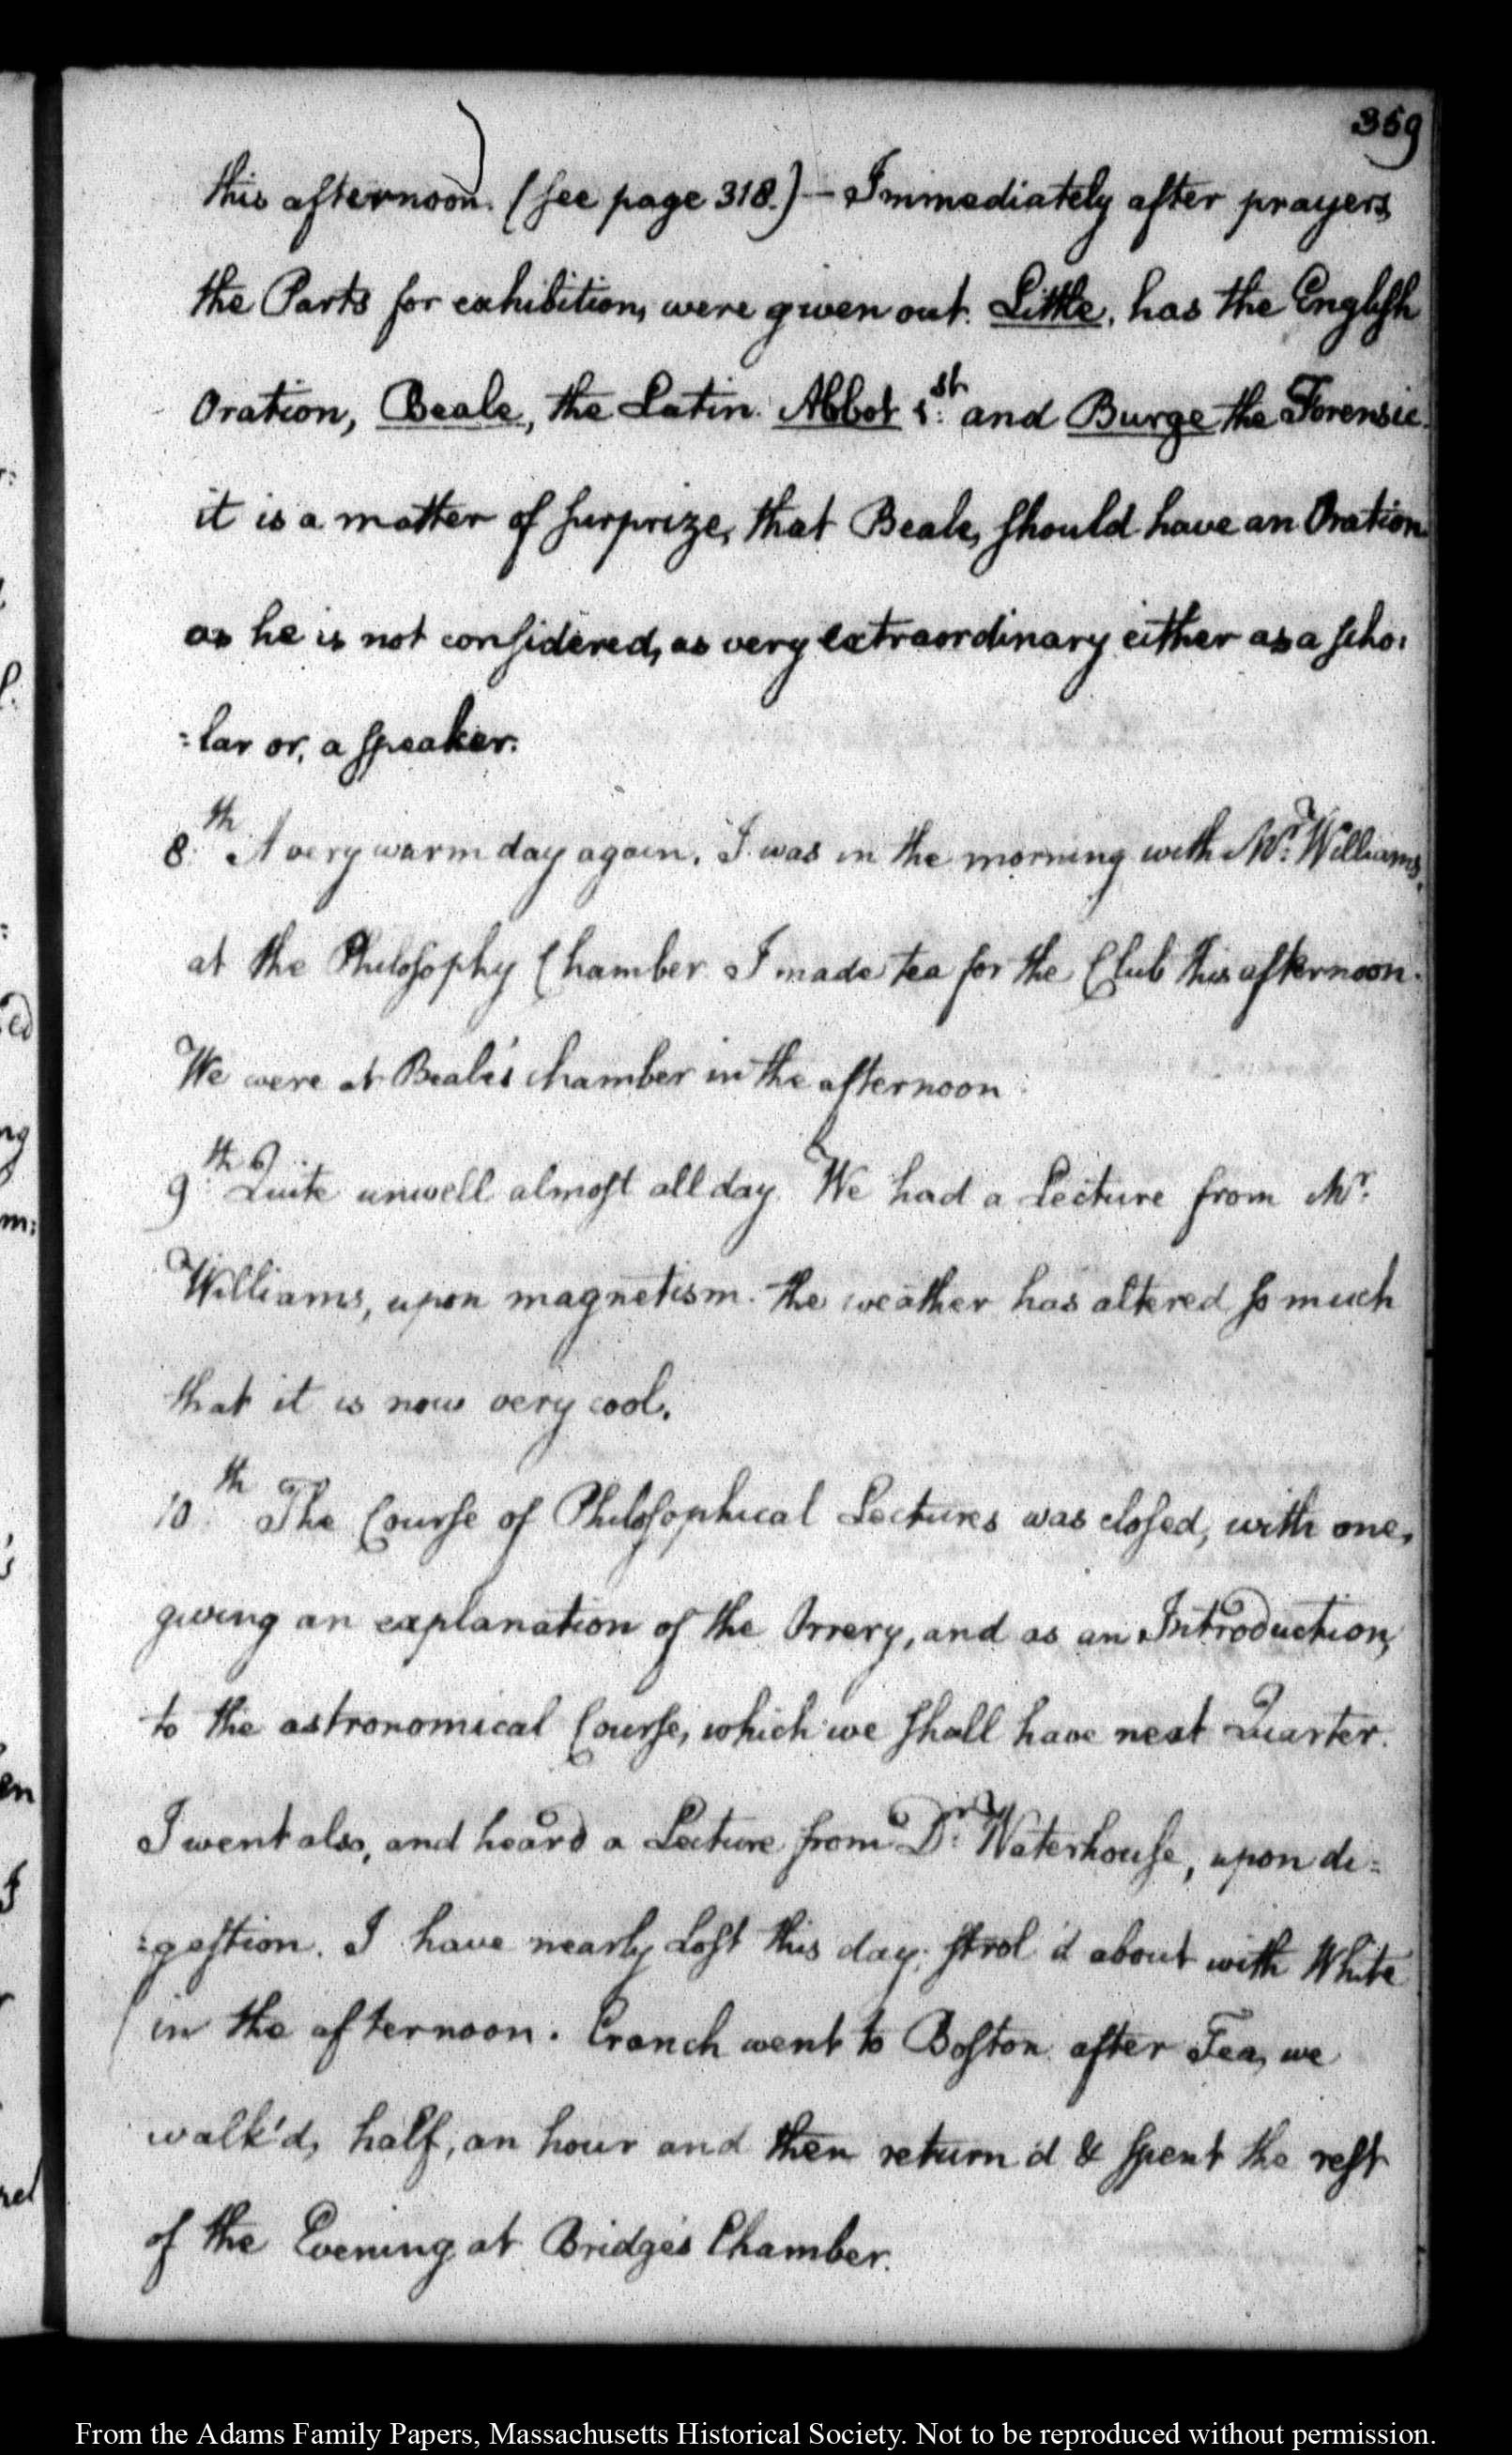 359
this afternoon. (see page 318.) — Immediately after prayers
the Parts for exhibition, were given out. Little, has the English
Oration, Beale, the Latin. Abbot 1st: and Burge the Forensic.
it is a matter of surprize, that Beale, should have an Oration
as he is not considered, as very extraordinary either as a scho:
:lar or, a speaker.
8th. A very warm day again. I was in the morning with Mr. Williams,
at the Philosophy Chamber. I made tea for the Club this afternoon.
We were at Beale's chamber in the afternoon.
9th. Quite unwell almost all day. We had a Lecture from Mr.
Williams, upon magnetism. the weather has altered so much
that it is now very cool.
10th. The Course of Philosophical Lectures was closed, with one,
giving an explanation of the Orrery, and as an Introduction,
to the astronomical Course, which we shall have next Quarter.
I went also, and heard a Lecture from Dr. Waterhouse, upon di=
:gestion. I have nearly lost this day; strol'd about with White
in the afternoon. Cranch went to Boston after Tea, we
walk'd, half, an hour and then return'd & spent the rest
of the Evening at Bridge's Chamber.
From the Adams Family Papers, Massachusetts Historical Society. Not to be reproduced without permission.